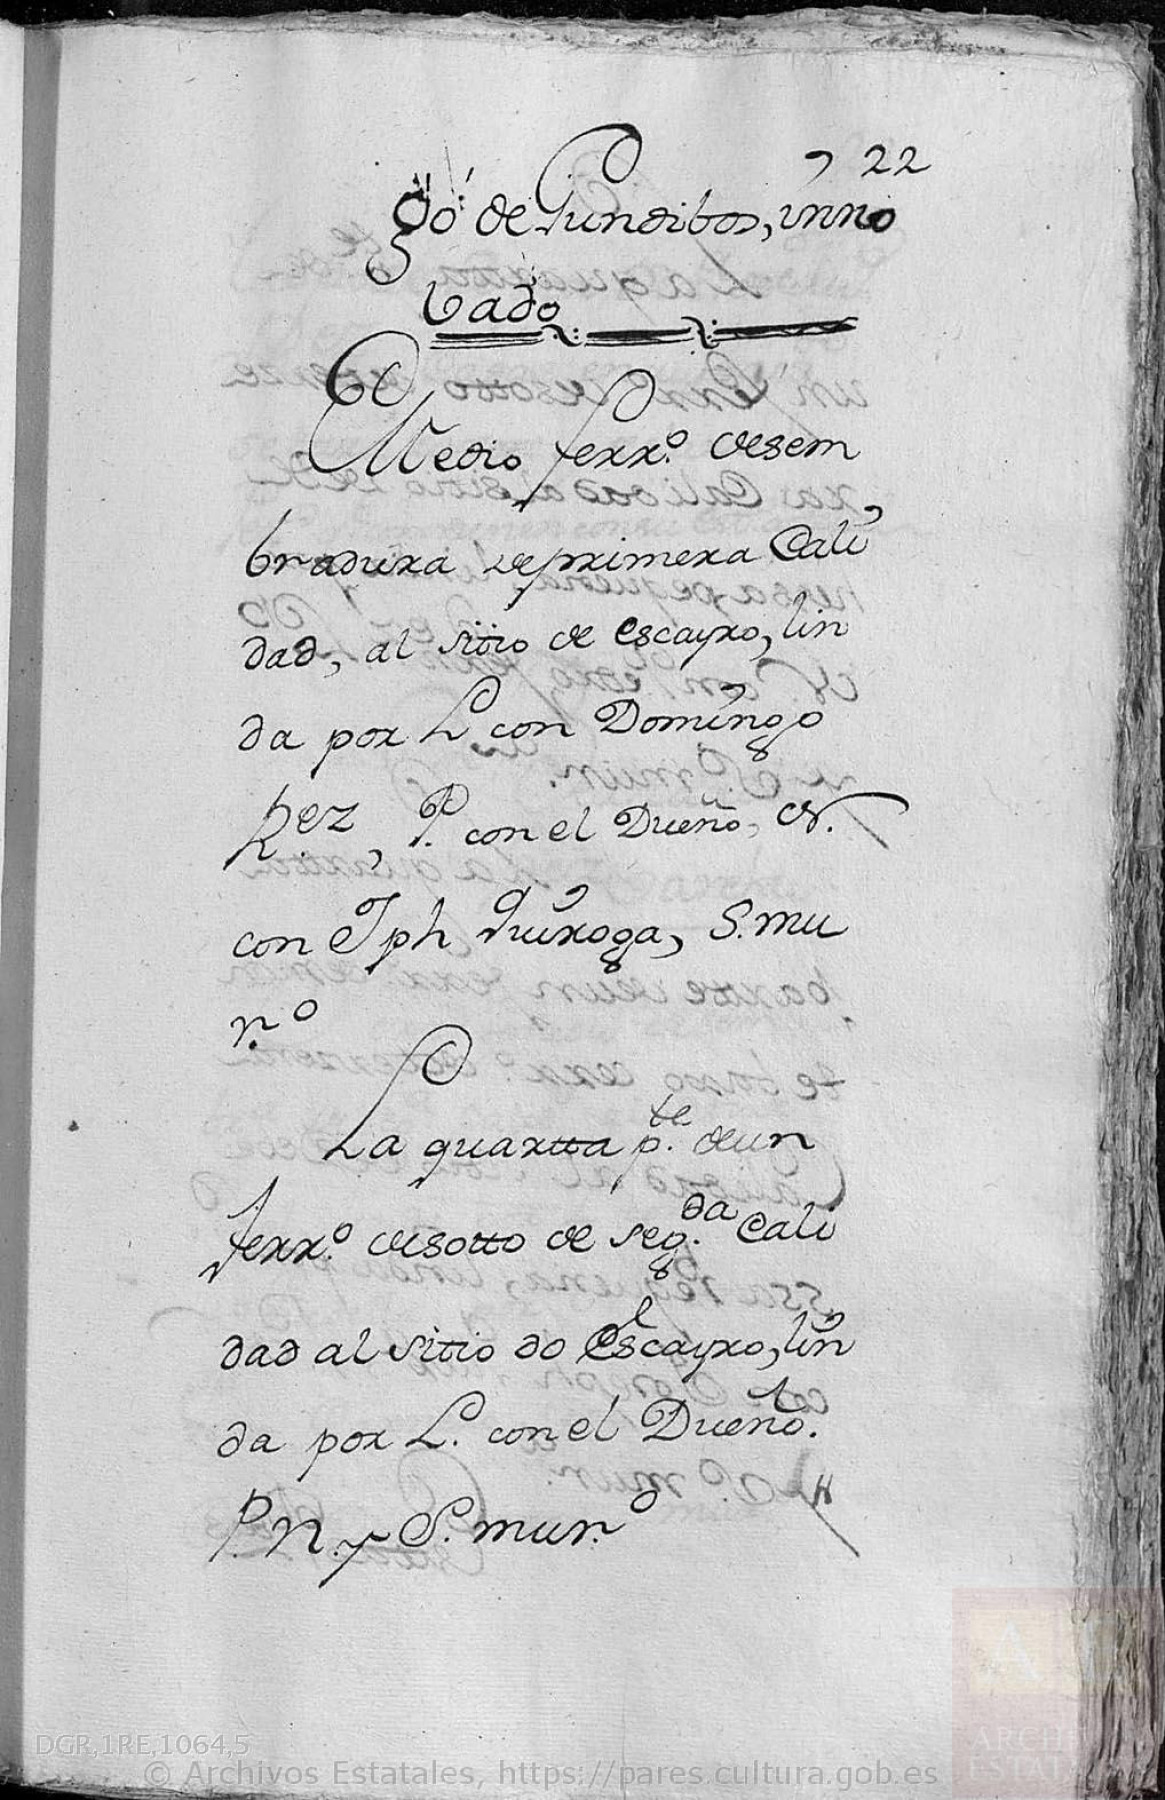 22
go de Fundibos, inno
bado
Medio ferr.º desem
bradura de primera Cali
dad, al sitio de escayro, lin
da por L con Domingo
Rez, P. con el Dueño, N.
con Jph Quiroga, S. mu
r.º
La quartta p.te de un
ferr.º de sotto de seg.da Cali
dad al sitio do Escayro, lin
da por L. con el Dueño.
P. N. y S. mur.º
DGR,1RE,1064,5
© Archivos Estatales, https://pares.cultura.gob.es